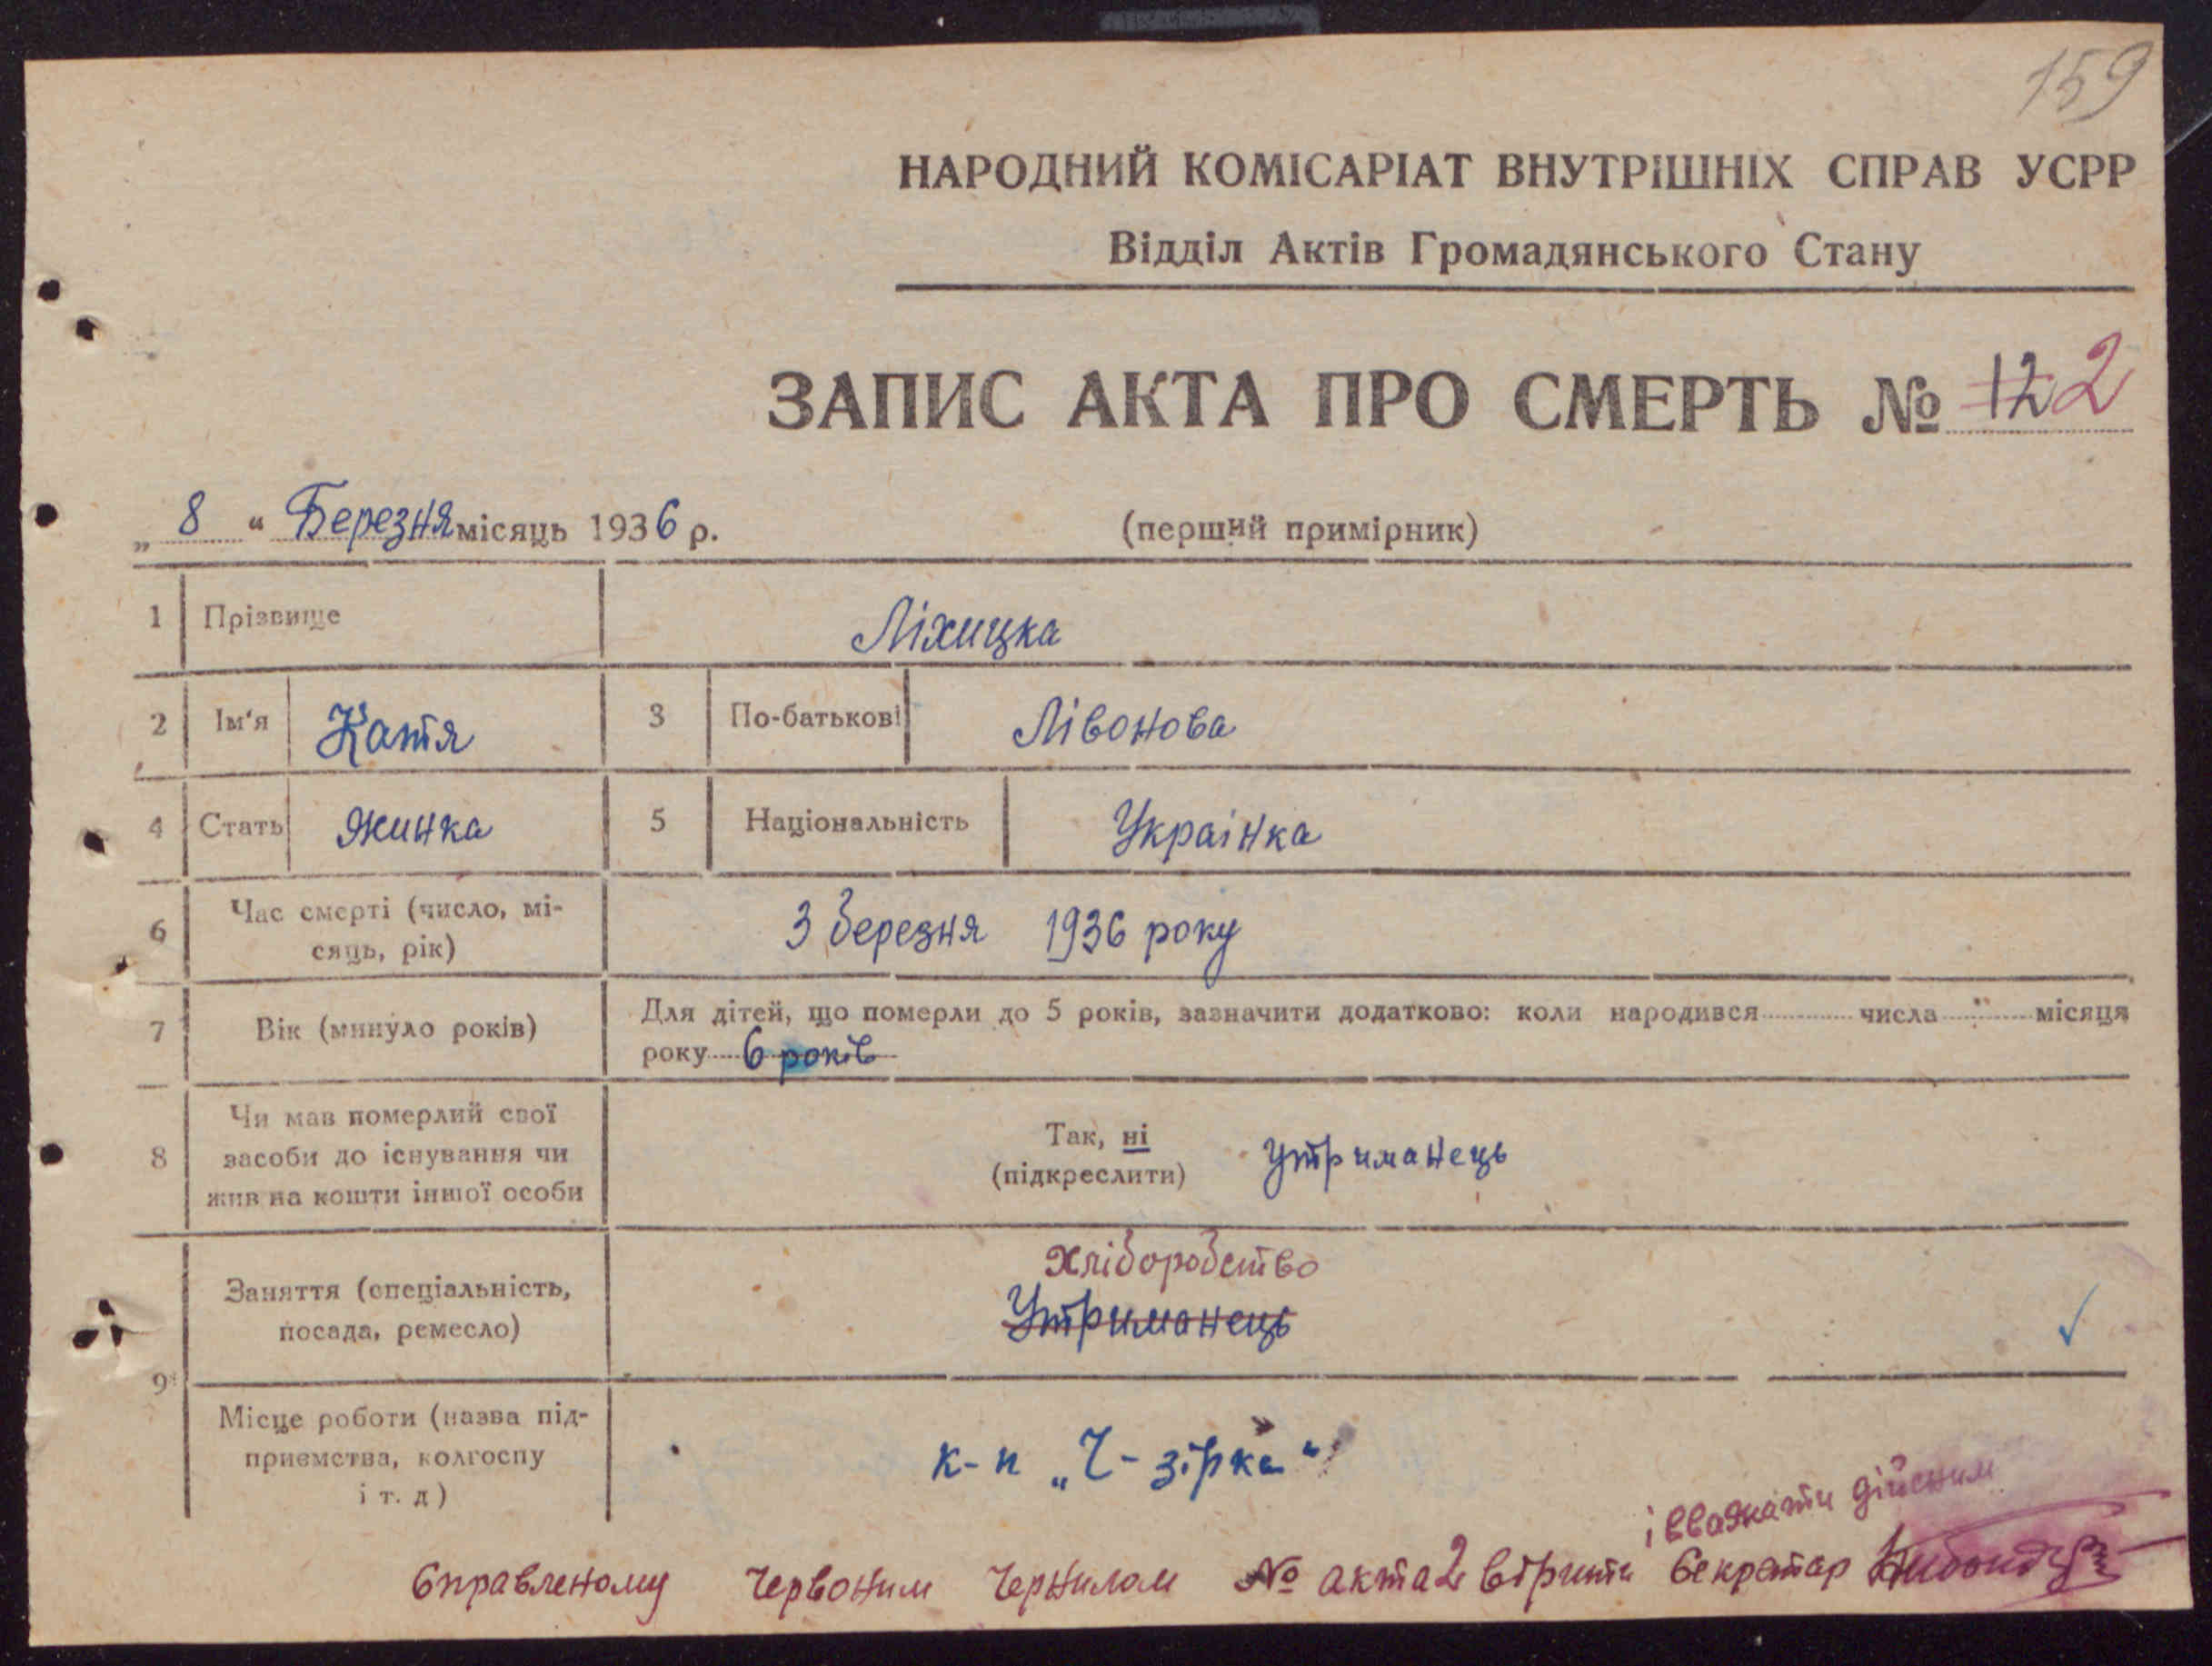 159
НАРОДНИЙ КОМІСАРІАТ ВНУТРІШНІХ СПРАВ УСРР
Відділ Актів Громадянського Стану
ЗАПИС АКТА ПРО СМЕРТЬ № 12 2
„ 8 “ Березня місяць 1936 р. (перший примірник)
1 Прізвище Ліхицка
2 Ім'я Катя 3 По-батькові Лівонова
4 Стать Жинка 5 Національність Украінка
6 Час смерті (число, мі-
сяць, рік) 3 березня 1936 року
7 Вік (минуло років) Для дітей, що померли до 5 років, зазначити додатково: коли народився числа місяця
року 6 років
8 Чи мав померлий свої
засоби до існування чи
жив на кошти іншої особи
Так, ні
(підкреслити) утриманець
9 Заняття (спеціальність,
посада, ремесло)
хліборобство
Утриманець
Місце роботи (назва під-
приємства, колгоспу
і т. д)
к-п „Ч-зірка“
і вважати дійсним
Справленому червоним чернилом № акта 2 вірити Секретар